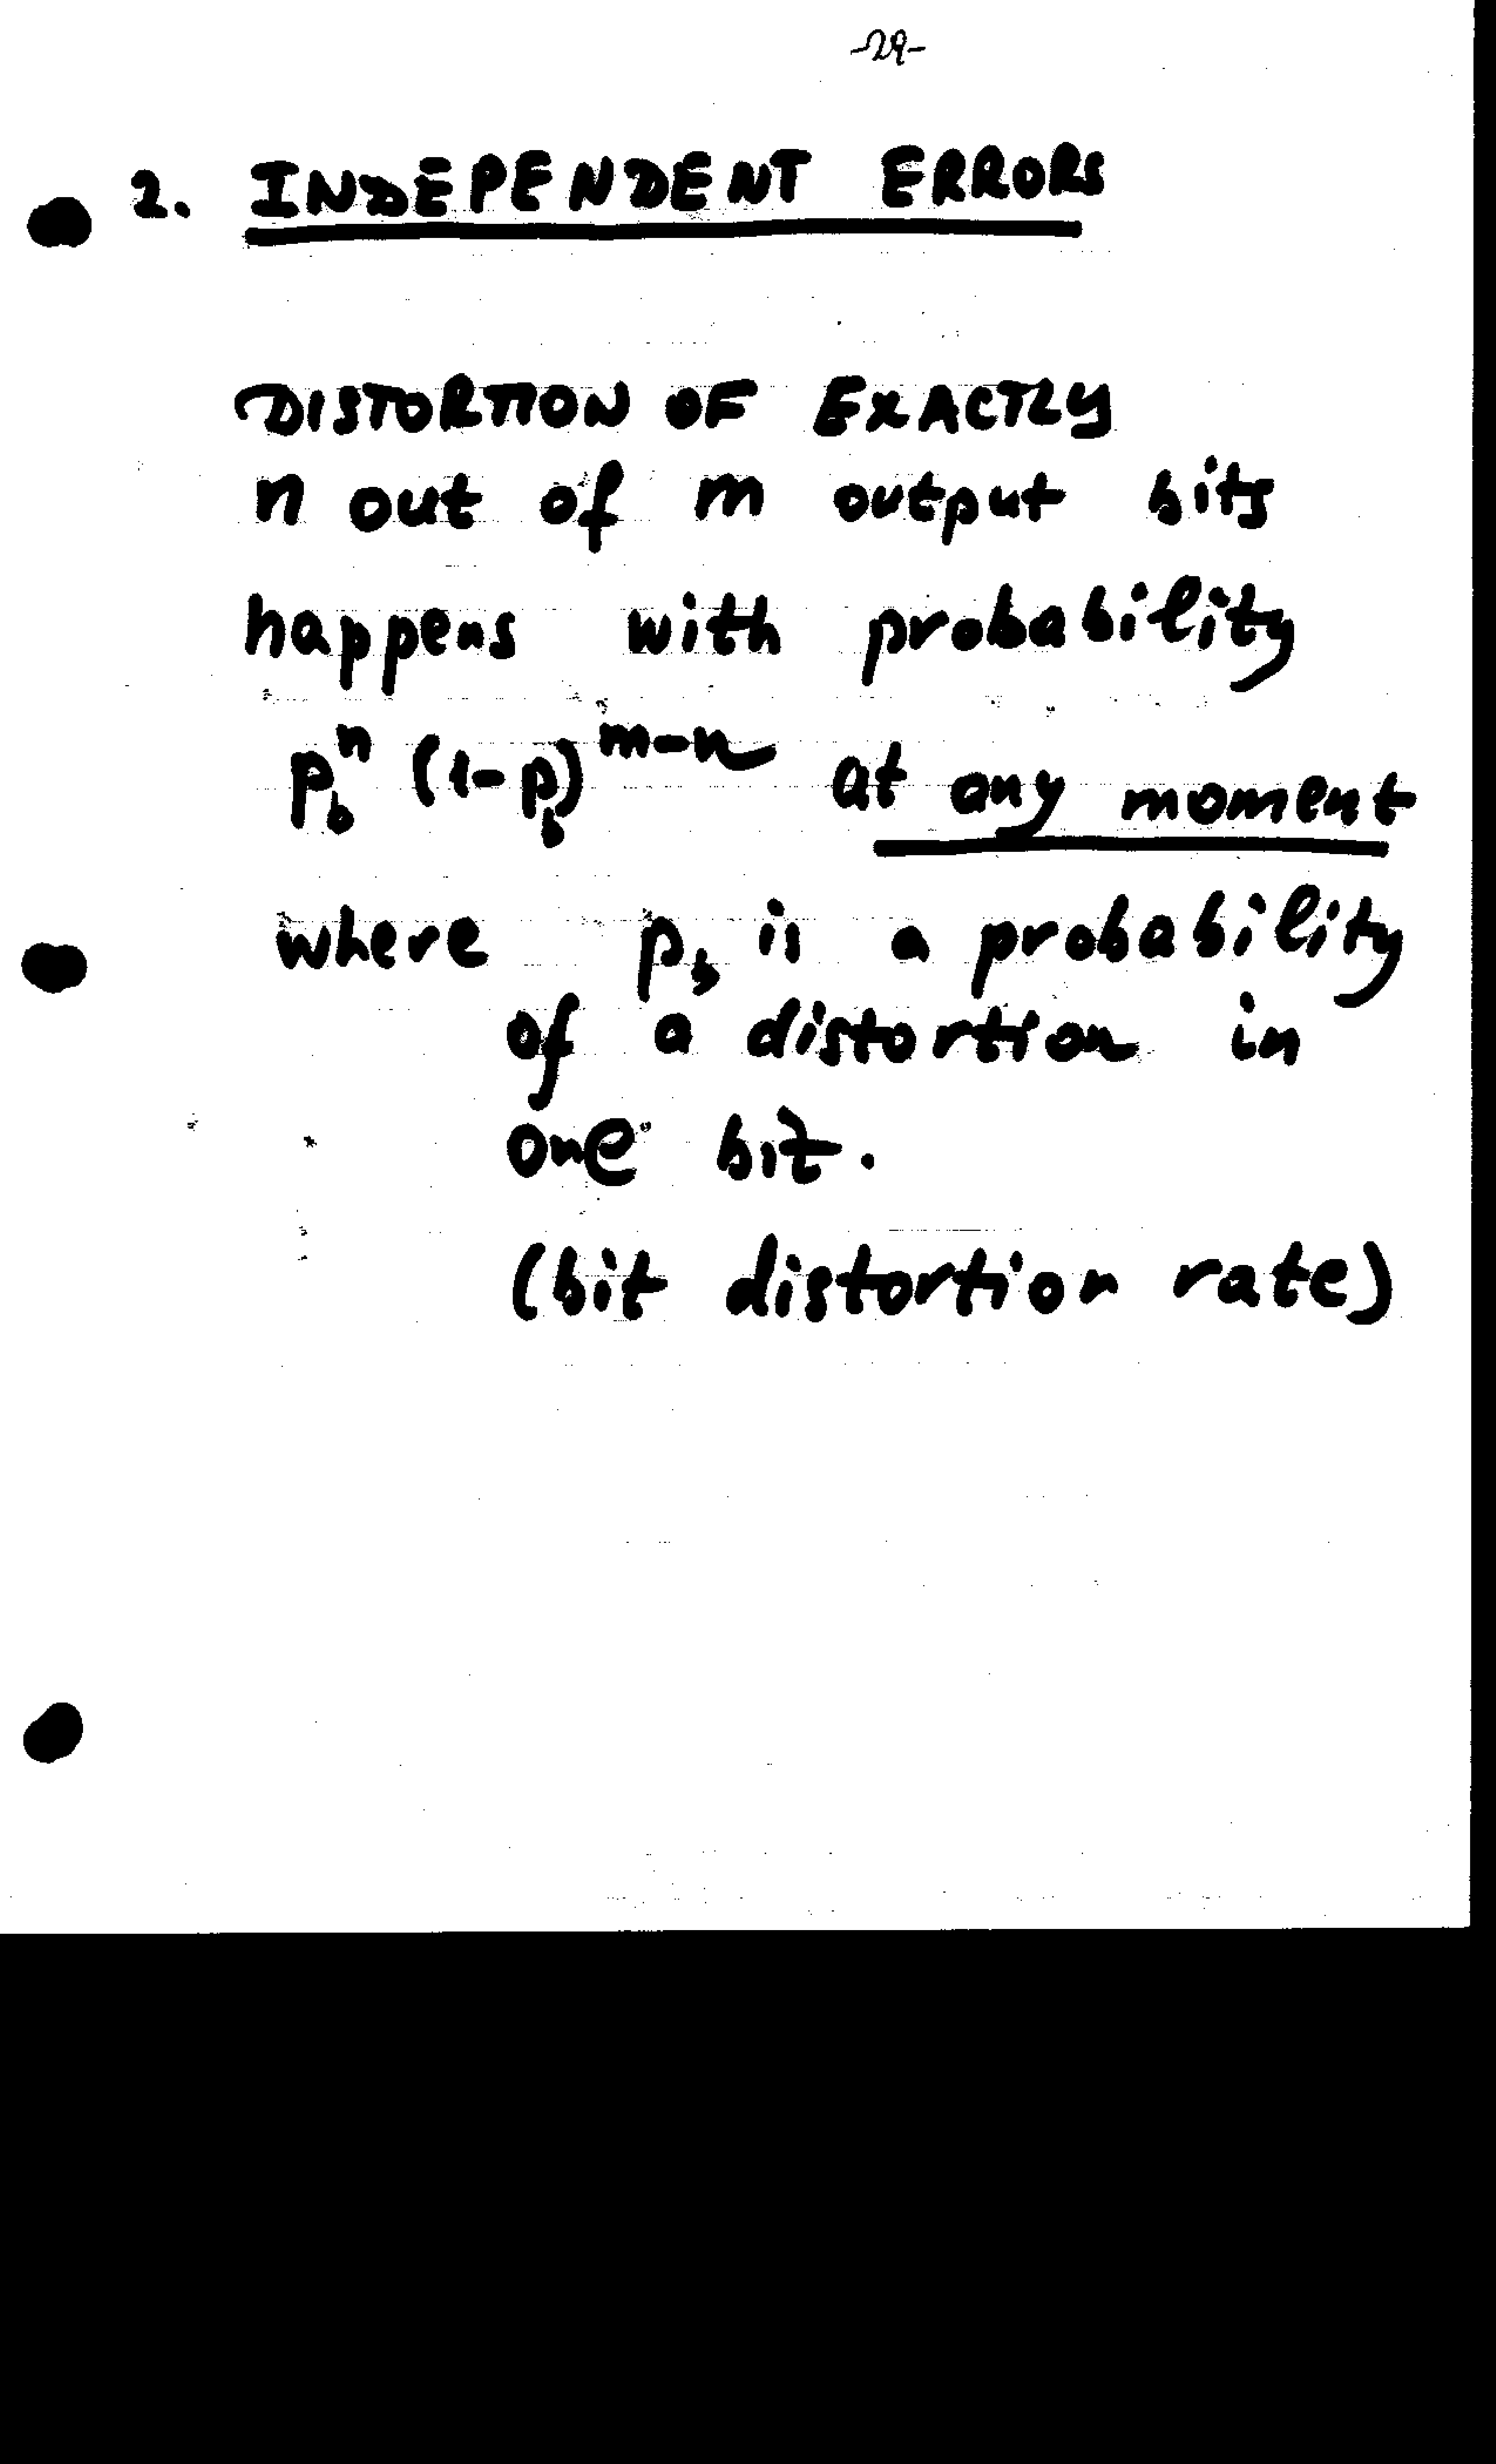 -29-
2. INDEPENDENT ERRORS
DISTORTION OF EXACTLY
n out of m output bits
happens with probability
p_b^n (1-p_b)^{m-n} at any moment
where p_b is a probability
of a distortion in
one bit.
(bit distortion rate)